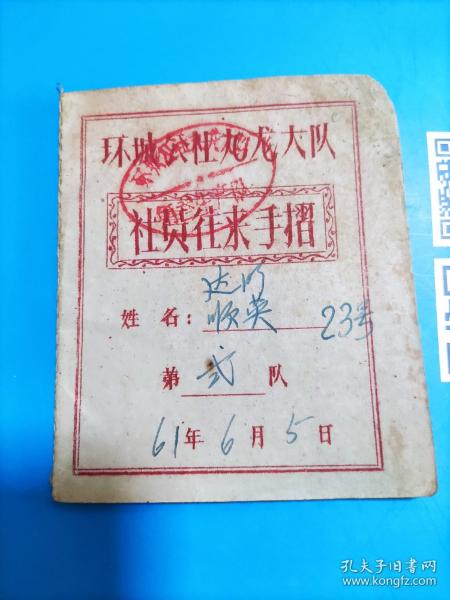 环城公社九龙大队
社员往来手摺
达明
姓名：顺英 23号
第 弍 队
61年6月5日
孔夫子旧书网
www.kongfz.com